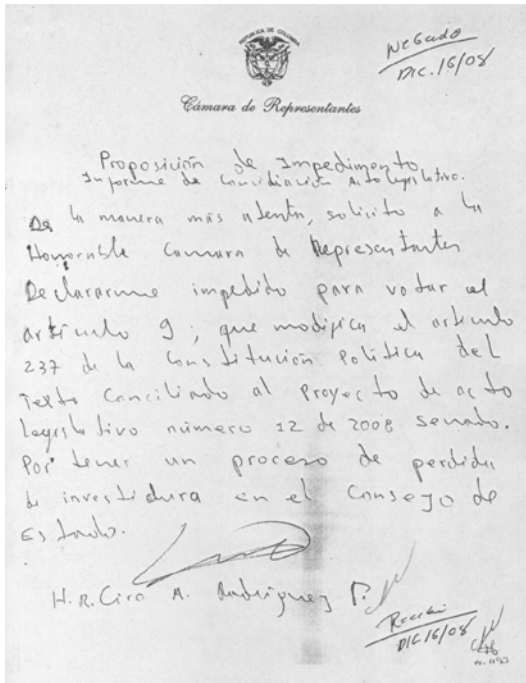 REPUBLICA DE COLOMBIA
Negado
Dic. 16/08
Cámara de Representantes
Proposición de Impedimento
Informe de Conciliación Acto Legislativo.
De la manera más atenta, solicito a la
Honorable Camara de Representantes
Declararme impedido para votar el
artículo 9, que modifica el artículo
237 de la Constitución Política del
Texto Conciliado al Proyecto de acto
Legislativo número 12 de 2008 senado.
Por tener un proceso de perdida
de investidura en el Consejo de
Estado.
H.R. Ciro A. Rodriguez P.
Recibí
DIC 16/08